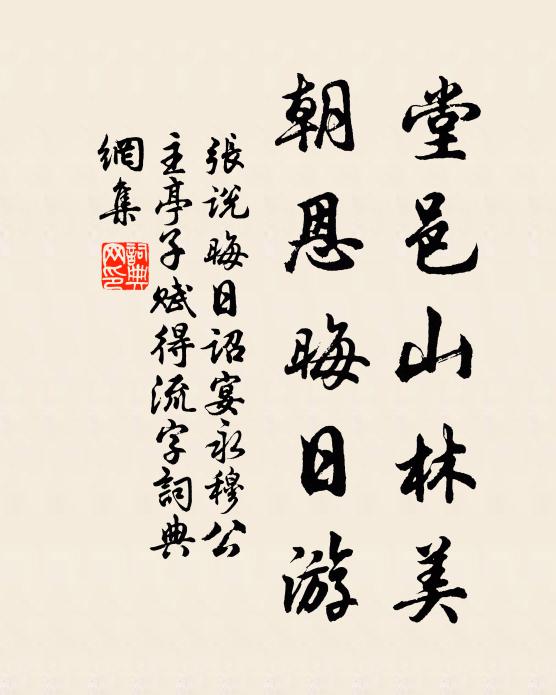 堂邑山林美
朝恩晦日游
張說晦日詔宴永穆公
主亭子賦得流字詞典
網集
詞典网印